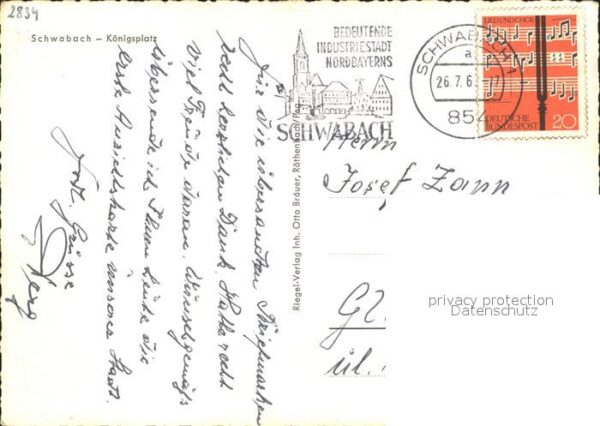 2834
Schwabach – Königsplatz
Für die übersandten Briefmarken
recht herzlichen Dank. Hatte recht
viel Freude daran. Wunschgemäß
übersende ich Ihnen heute die
erste Ansichtskarte unserer Stadt.
Mit Grüsse
Riegel-Verlag Inh. Otto Bräuer, Röthenbach/Peg.
BEDEUTENDE
INDUSTRIESTADT
NORDBAYERNS
SCHWABACH
SCHWABACH 1
a
26.7.6
17
854
LIED UND CHOR
DEUTSCHE
BUNDESPOST 20
Herrn
Josef Zann
Gl
ul.
privacy protection
Datenschutz